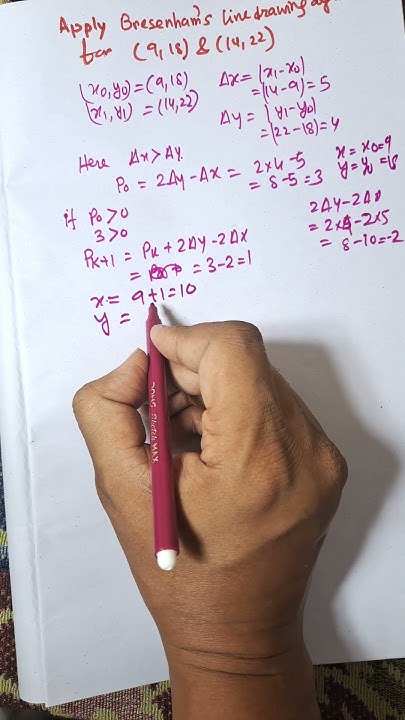 Apply Bresenham's line drawing
for (9,18) & (14,22)
(x0,y0) = (9,18)
(x1,y1) = (14,22)
Δx = |x1-x0|
= (14-9) = 5
Δy = |y1-y0|
= (22-18) = 4
Here Δx>Δy
P0 = 2Δy-Δx = 2×4-5
= 8-5=3
x = x0=9
y = y0 =18
if P0>0
3>0
PK+1 = PK + 2Δy-2Δx
= 3-2=1
2Δy-2Δx
= 2×4-2×5
= 8-10=-2
x = 9+1=10
y =
DOMS